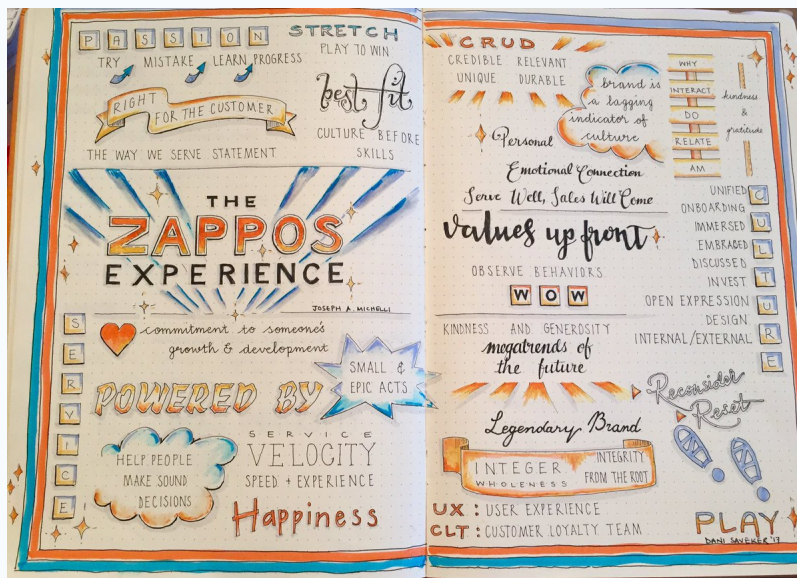 PASSION
TRY MISTAKE LEARN PROGRESS
RIGHT
FOR THE CUSTOMER
THE WAY WE SERVE STATEMENT
STRETCH
PLAY TO WIN
best fit
CULTURE BEFORE
SKILLS
THE
ZAPPOS
EXPERIENCE
JOSEPH A. MICHELLI
SERVICE
commitment to someone's
growth & development
POWERED BY
SMALL &
EPIC ACTS
HELP PEOPLE
MAKE SOUND
DECISIONS
SERVICE
VELOCITY
SPEED + EXPERIENCE
Happiness
CRUD
CREDIBLE RELEVANT
UNIQUE DURABLE
brand is
a lagging
indicator of
culture
WHY
INTERACT
DO
RELATE
AM
kindness
&
gratitude
Personal
Emotional Connection
Serve Well, Sales Will Come
values up front
OBSERVE BEHAVIORS
WOW
KINDNESS AND GENEROSITY
megatrends of
the future
CULTURE
UNIFIED
ONBOARDING
IMMERSED
EMBRACED
DISCUSSED
INVEST
OPEN EXPRESSION
DESIGN
INTERNAL/EXTERNAL
Reconsider
Reset
Legendary Brand
INTEGER
WHOLENESS
INTEGRITY
FROM THE ROOT
UX: USER EXPERIENCE
CLT: CUSTOMER LOYALTY TEAM
PLAY
DANI SAVEKER '17